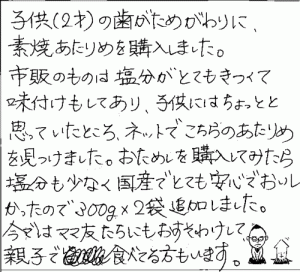 子供(2才)の歯がためがわりに、
素焼あたりめを購入しました。
市販のものは塩分がとてもきつくて
味付けもしてあり、子供にはちょっとと
思っていたところ、ネットでこちらのあたりめ
を見つけました。おためしを購入してみたら
塩分も少なく国産でとても安心でおいし
かったので300g×2袋追加しました。
今ではママ友たちにもおすそわけして
親子で食べてる方もいます。